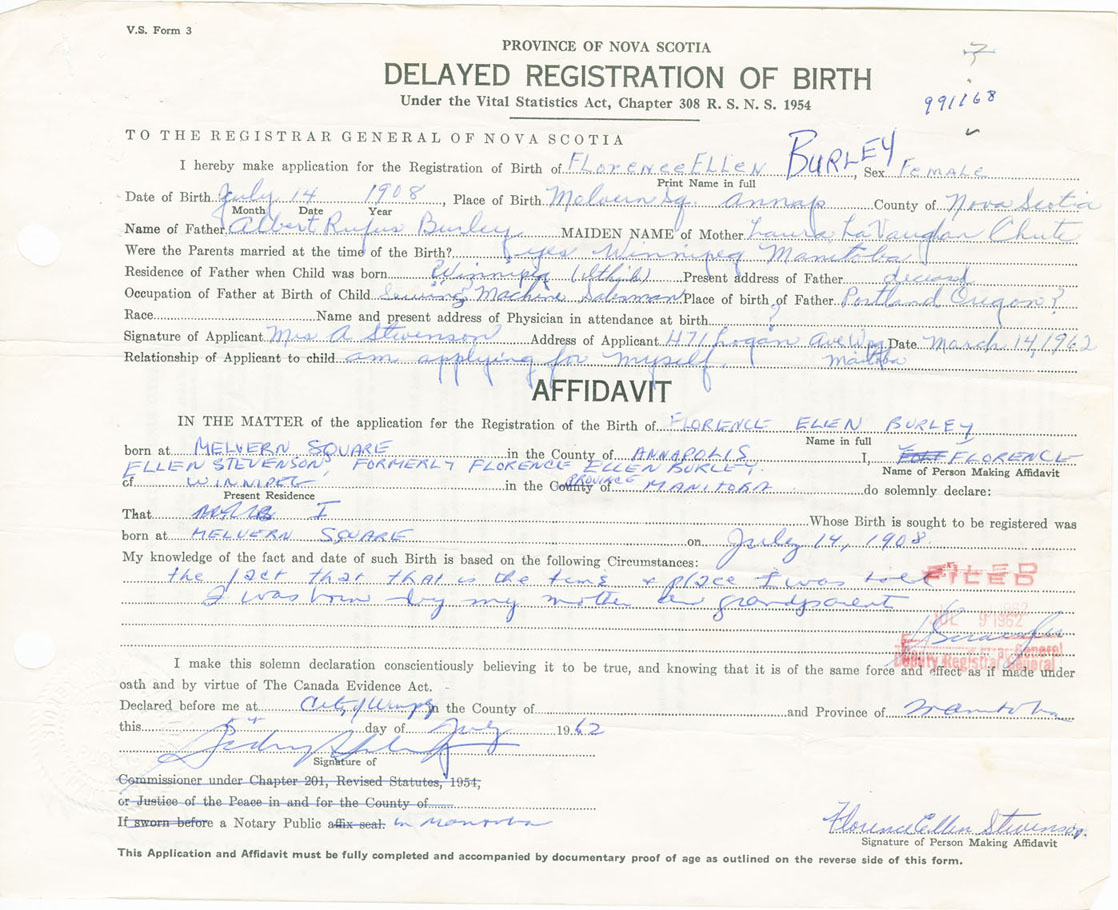 V.S. Form 3
PROVINCE OF NOVA SCOTIA
DELAYED REGISTRATION OF BIRTH
Under the Vital Statistics Act, Chapter 308 R. S. N. S. 1954
991168
TO THE REGISTRAR GENERAL OF NOVA SCOTIA
I hereby make application for the Registration of Birth of FLorence ELLEN BURLEY, Sex Female
Print Name in full
Date of Birth July 14 1908, Place of Birth Melvern Sq. Annap County of Nova Scotia
Month Date Year
Name of Father Albert Rufus Burley MAIDEN NAME of Mother Laura LaVaughan Chute
Were the Parents married at the time of the Birth? yes Winnipeg Manitoba
Residence of Father when Child was born Winnipeg Present address of Father deceased
Occupation of Father at Birth of Child Sewing? Machine Salesman Place of birth of Father Portland Oregon?
Race Name and present address of Physician in attendance at birth ?
Signature of Applicant Mrs A Stevenson Address of Applicant 471 Logan Ave Wpg Date March 14, 1962
Manitoba
Relationship of Applicant to child am applying for myself.
AFFIDAVIT
IN THE MATTER of the application for the Registration of the Birth of FLORENCE ELLEN BURLEY
Name in full
born at MELVERN SQUARE in the County of ANNAPOLIS I, FLORENCE
Name of Person Making Affidavit
ELLEN STEVENSON, FORMERLY FLORENCE ELLEN BURLEY.
of WINNIPEG in the County of PROVINCE MANITOBA do solemnly declare:
Present Residence
That I Whose Birth is sought to be registered was
born at MELVERN SQUARE on July 14, 1908.
My knowledge of the fact and date of such Birth is based on the following Circumstances:
the fact that that is the time & place I was told
I was born by my mother & grandparent
FILED
9 1962
Deputy Registrar General
I make this solemn declaration conscientiously believing it to be true, and knowing that it is of the same force and effect as if made under
oath and by virtue of The Canada Evidence Act.
Declared before me at City of Winnipeg in the County of and Province of Manitoba
this 5th day of July 1962
Signature of
Commissioner under Chapter 201, Revised Statutes, 1954,
or Justice of the Peace in and for the County of
If sworn before a Notary Public affix seal. in Manitoba
Florence Ellen Stevenson.
Signature of Person Making Affidavit
This Application and Affidavit must be fully completed and accompanied by documentary proof of age as outlined on the reverse side of this form.